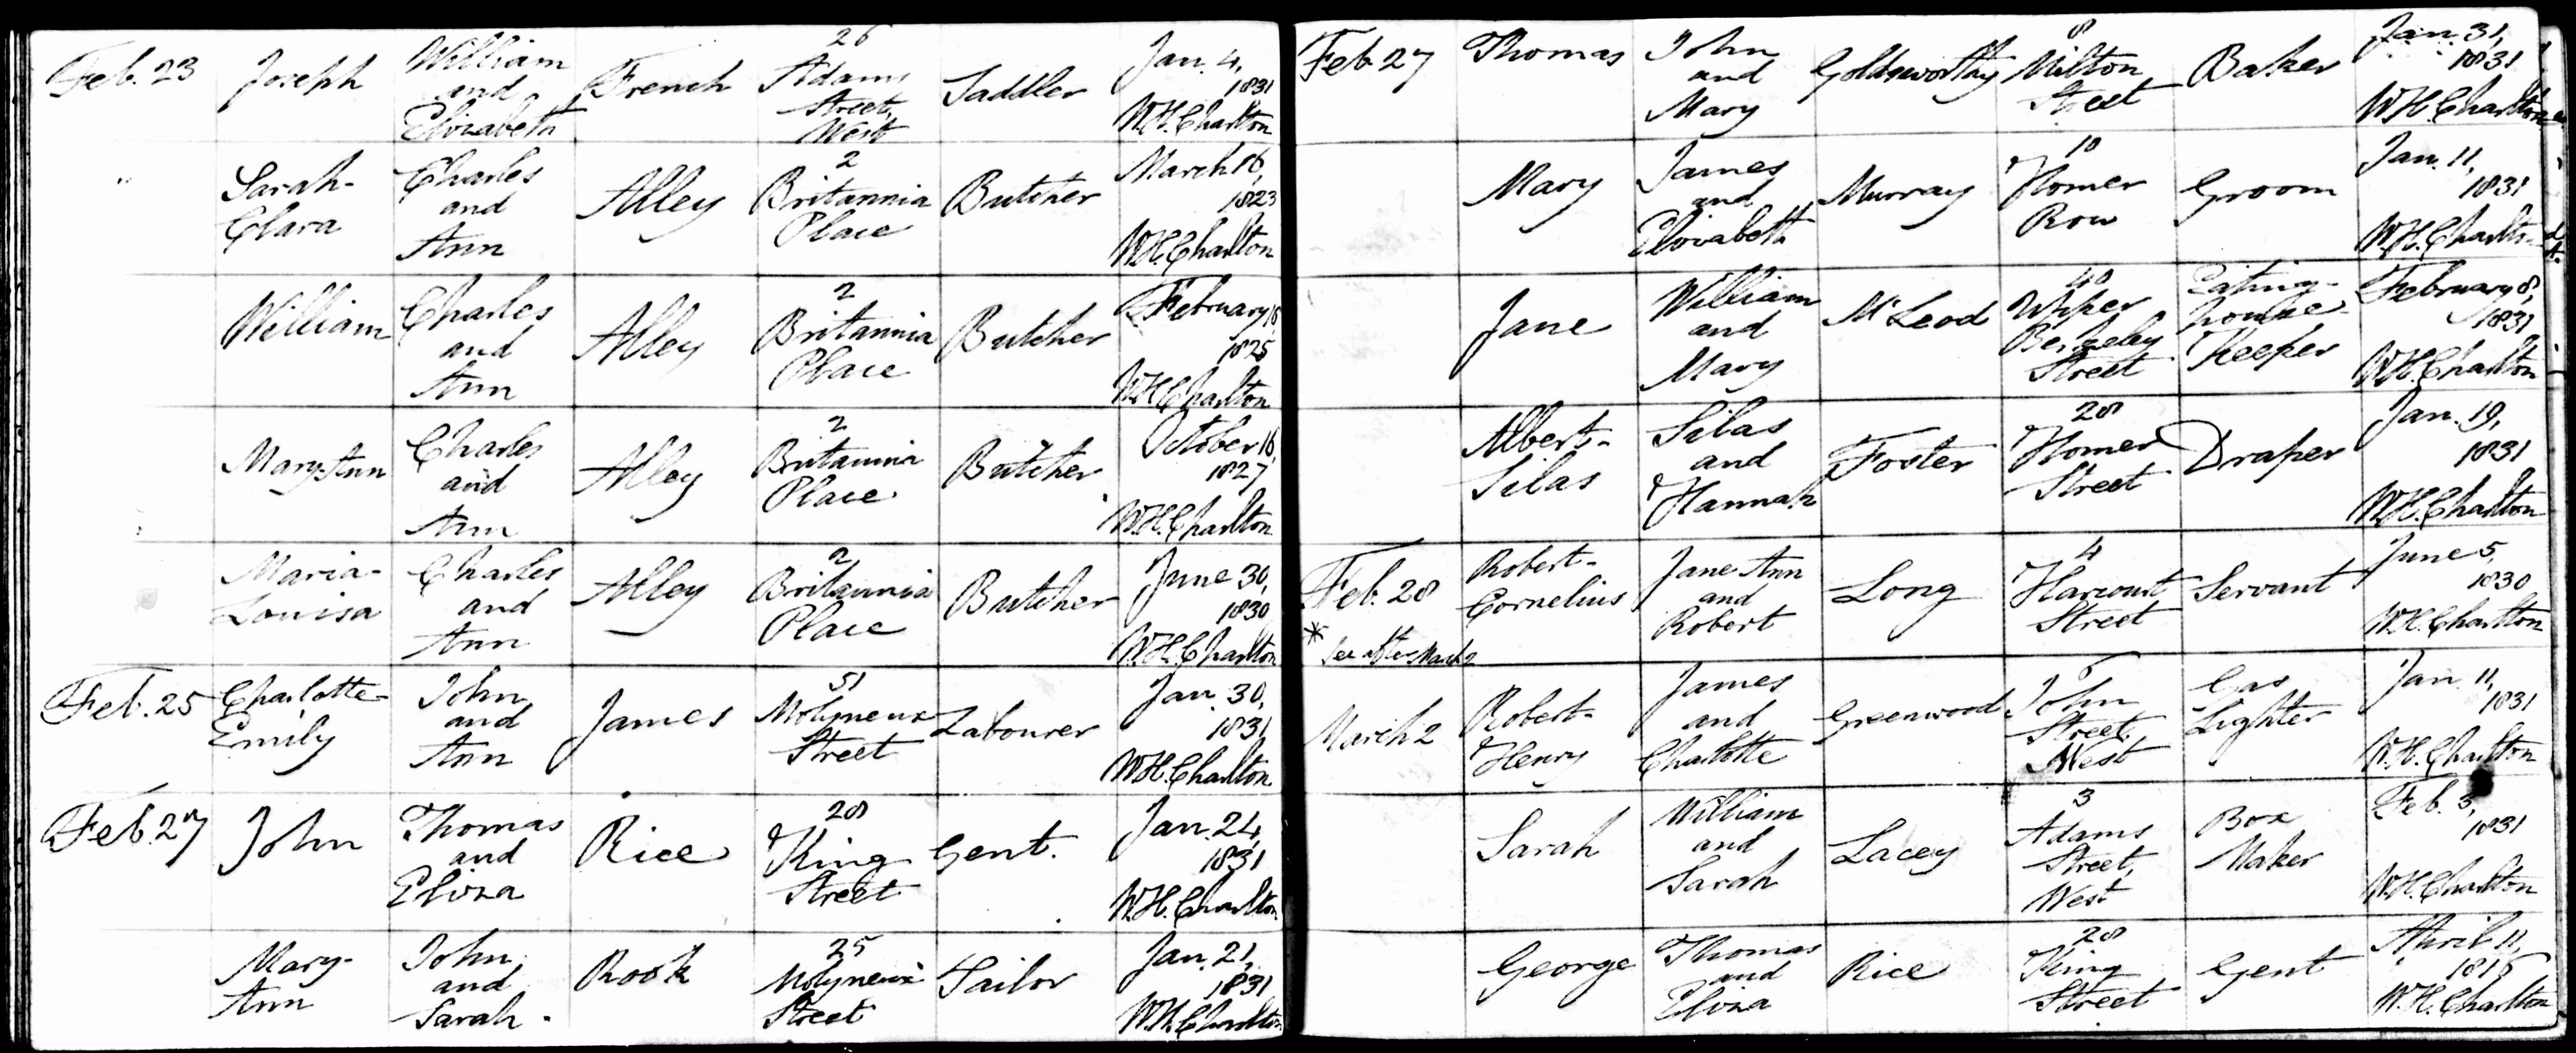 Feb. 23 Joseph William and Elizabeth French 26 Adams Street, West Saddler Jan. 4, 1831 W.H. Charlton
" Sarah-Clara Charles and Ann Alley 2 Britannia Place Butcher March 16, 1823 W.H. Charlton
William Charles and Ann Alley 2 Britannia Place Butcher February 16, 1825 W.H. Charlton
Mary-Ann Charles and Ann Alley 2 Britannia Place Butcher October 16, 1827 W.H. Charlton
Maria-Louisa Charles and Ann Alley 2 Britannia Place Butcher June 30, 1830 W.H. Charlton
Feb. 25 Charlotte-Emily John and Ann James 51 Molyneux Street Labourer Jan. 30, 1831 W.H. Charlton
Feb. 27 John Thomas and Eliza Rice 28 King Street Gent. Jan. 24, 1831 W.H. Charlton
Mary-Ann John and Sarah Rook 25 Molyneux Street Tailor Jan. 21, 1831 W.H. Charlton
Feb 27 Thomas John and Mary Goldsworthy 8 Milton Street Baker Jan. 31, 1831 W.H. Charlton
Mary James and Elizabeth Murray 10 Homer Row Groom Jan. 11, 1831 W.H. Charlton
Jane William and Mary McLeod 40 Upper Berkeley Street Eating-house Keeper February 8, 1831 W.H. Charlton
Albert-Silas Silas and Hannah Foster 28 Homer Street Draper Jan. 19, 1831 W.H. Charlton
Feb. 28 Robert-Cornelius Jane Ann and Robert Long 4 Harcourt Street Servant June 5, 1830 W.H. Charlton
* See after March 2
March 2 Robert-Henry James and Charlotte Greenwood John Street, West Gas Lighter Jan. 11, 1831 W.H. Charlton
Sarah William and Sarah Lacey 3 Adams Street, West Box Maker Feb. 3, 1831 W.H. Charlton
George Thomas and Eliza Rice 28 King Street Gent April 11, W.H. Charlton